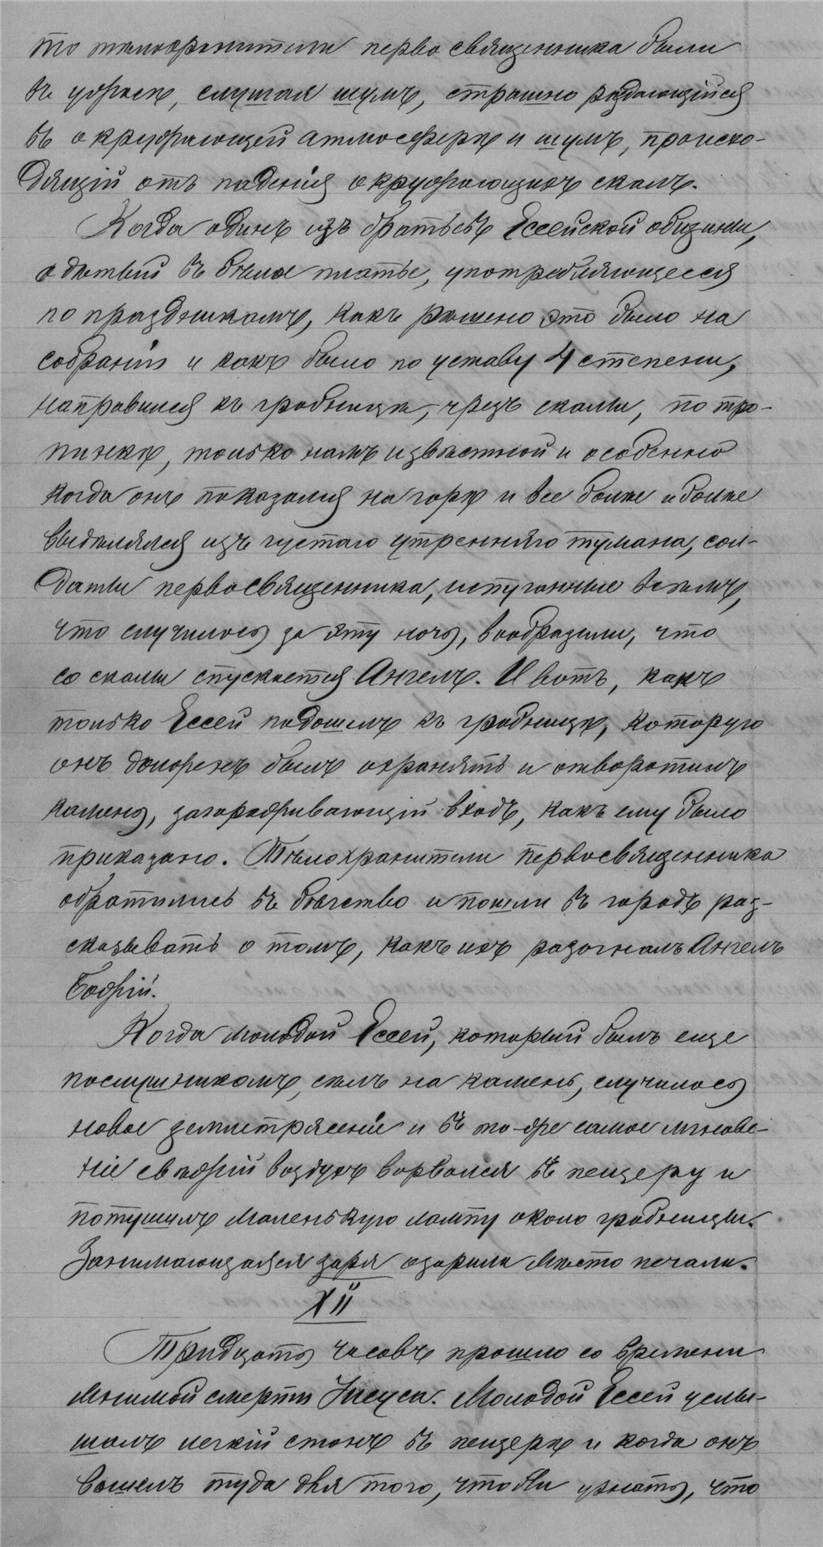 то тѣлохранители первосвященника были
въ ужасѣ, слушая шумъ, страшно раздающійся
въ окружающей атмосферѣ и шумъ, происхо-
дящій отъ паденія окружающихъ скалъ.
Когда одинъ изъ братьевъ Ессейской общины,
одѣтый въ бѣлое платье, употребляющееся
по праздникамъ, какъ рѣшено это было на
собраніи и какъ было по уставу 4 степени,
направился къ гробницѣ, чрезъ скалы, по тро-
пинкѣ, только намъ извѣстной и особенно
когда онъ показался на горѣ и все болѣе и болѣе
выдѣлялся изъ густаго утренняго тумана, сол-
даты первосвященника, испуганные всѣмъ,
что случилось за эту ночь, вообразили, что
со скалы спускается Ангелъ. И вотъ, какъ
только Ессей подошелъ къ гробницѣ, которую
онъ долженъ былъ охранять и отворотилъ
камень, загораживающій входъ, какъ ему было
приказано. Тѣлохранители первосвященника
обратились въ бѣгство и пошли въ городъ раз-
сказывать о томъ, какъ ихъ разогналъ Ангелъ
Божій.
Когда молодой Ессей, который былъ еще
послушникомъ, сѣлъ на камень, случилось
новое землетрясеніе и въ то-же самое мгнове-
ніе свѣжій воздухъ ворвался въ пещеру и
потушилъ маленькую лампу около гробницы.
Занимающаяся заря озарила мѣсто печали.
XII
Тридцать часовъ прошло со времени
мнимой смерти Іисуса. Молодой Ессей услы-
шалъ легкій стонъ въ пещерѣ и когда онъ
вошелъ туда для того, чтобы узнать, что